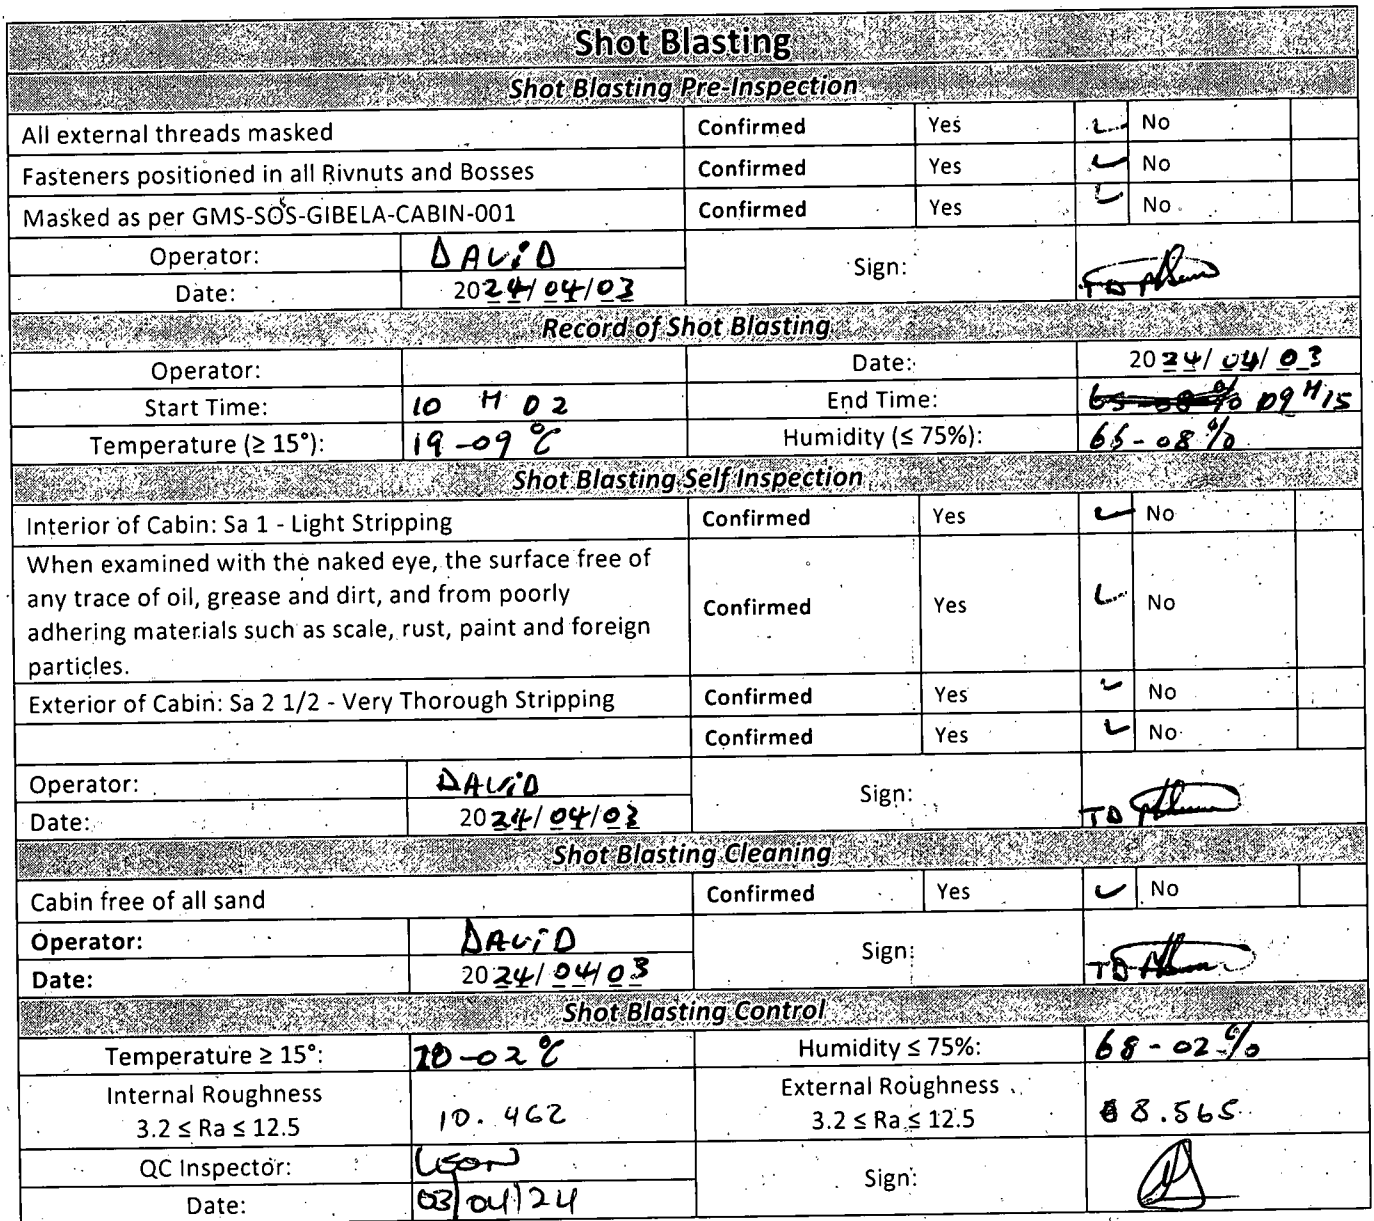 Shot Blasting
Shot Blasting Pre-Inspection
All external threads masked Confirmed Yes ✓ No
Fasteners positioned in all Rivnuts and Bosses Confirmed Yes ✓ No
Masked as per GMS-SOS-GIBELA-CABIN-001 Confirmed Yes ✓ No
Operator: DAViD Sign:
Date: 2024/04/03
Record of Shot Blasting
Operator: Date: 2024/04/03
Start Time: 10 H 02 End Time: 09 H 15
Temperature (≥ 15°): 19-09 °C Humidity (≤ 75%): 66-08 %
Shot Blasting Self Inspection
Interior of Cabin: Sa 1 - Light Stripping Confirmed Yes ✓ No
When examined with the naked eye, the surface free of
any trace of oil, grease and dirt, and from poorly
adhering materials such as scale, rust, paint and foreign
particles. Confirmed Yes ✓ No
Exterior of Cabin: Sa 2 1/2 - Very Thorough Stripping Confirmed Yes ✓ No
Confirmed Yes ✓ No
Operator: DAViD Sign: TD
Date: 2024/04/03
Shot Blasting Cleaning
Cabin free of all sand Confirmed Yes ✓ No
Operator: DAViD Sign: TD
Date: 2024/04/03
Shot Blasting Control
Temperature ≥ 15°: 20-02 °C Humidity ≤ 75%: 68-02 %
Internal Roughness
3.2 ≤ Ra ≤ 12.5 10.462
External Roughness
3.2 ≤ Ra ≤ 12.5 8.565
QC Inspector: Leon Sign:
Date: 03/04/24